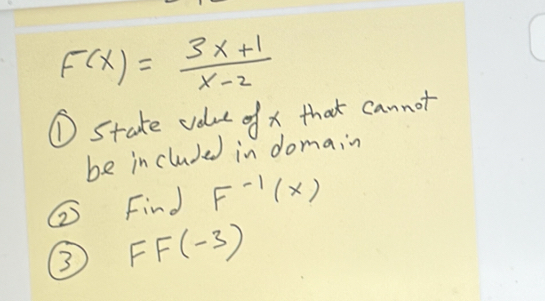 F(x) = 3x+1 / x-2
① State value of x that cannot
be included in domain
② Find F⁻¹(x)
③ FF(-3)